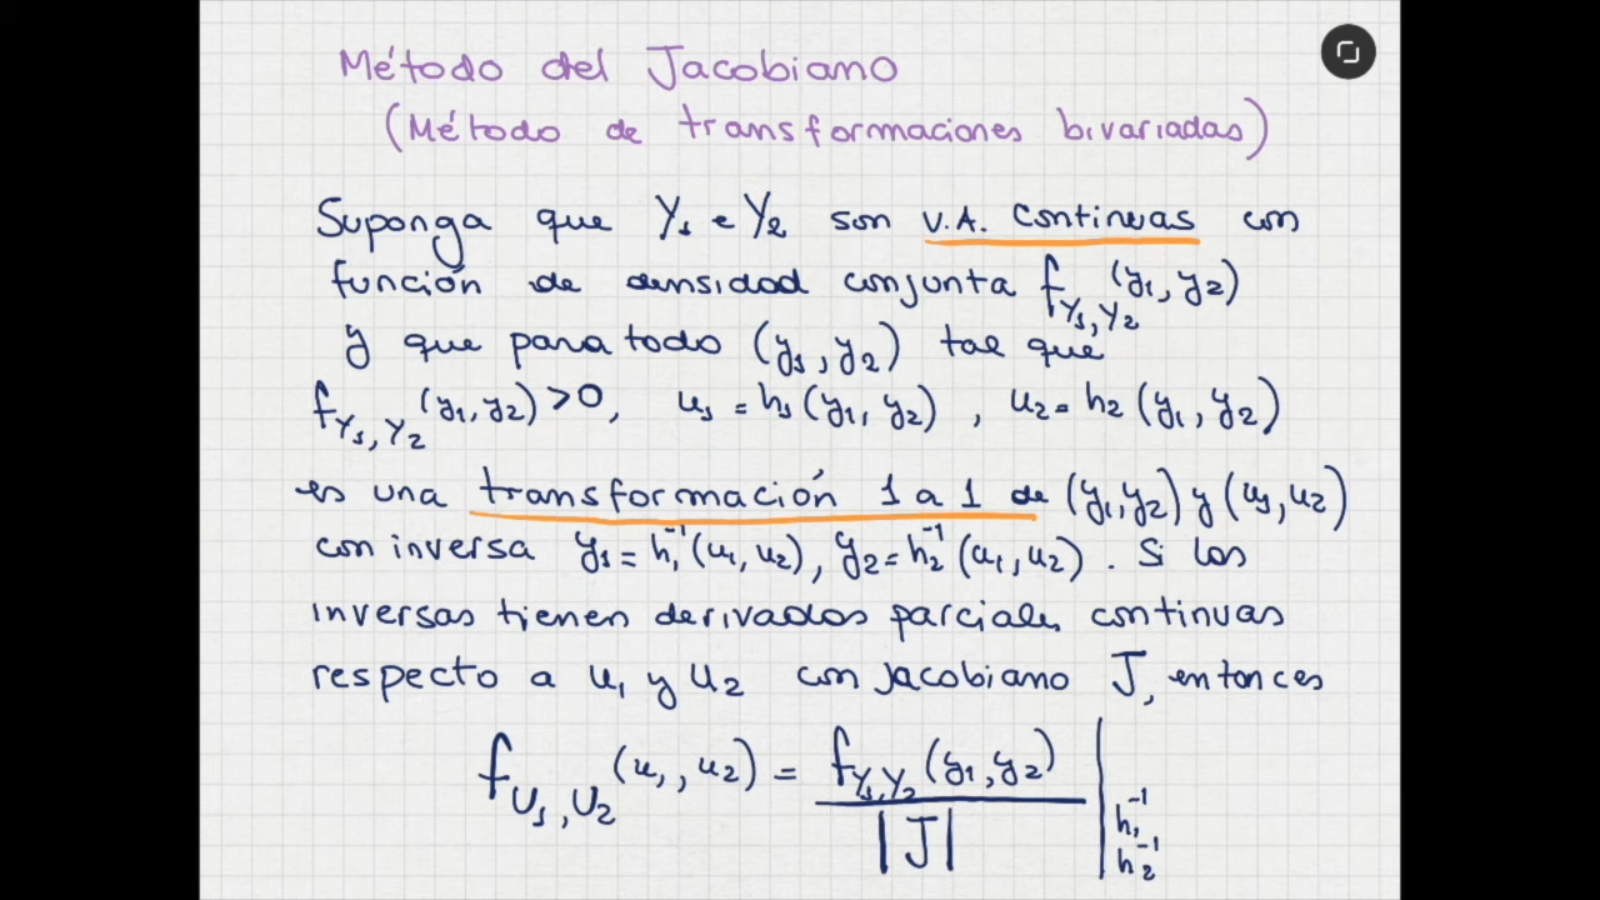 Método del Jacobiano
(Método de transformaciones bivariadas)
Suponga que Y₁ e Y₂ son V.A. continuas con
función de densidad conjunta f_{Y₁,Y₂}(y₁, y₂)
y que para todo (y₁, y₂) tal que
f_{Y₁,Y₂}(y₁, y₂) > 0, u₁ = h₁(y₁, y₂), u₂ = h₂(y₁, y₂)
es una transformación 1 a 1 de (y₁, y₂) y (u₁, u₂)
con inversa y₁ = h₁⁻¹(u₁, u₂), y₂ = h₂⁻¹(u₁, u₂). Si las
inversas tienen derivadas parciales continuas
respecto a u₁ y u₂ con jacobiano J, entonces
f_{U₁,U₂}(u₁, u₂) = f_{Y₁,Y₂}(y₁, y₂) / |J| |_{h₁⁻¹ h₂⁻¹}